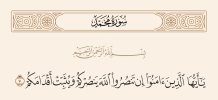 سُورَةُ مُحَمَّدٍ
بِسْمِ اللَّهِ الرَّحْمَٰنِ الرَّحِيمِ
يَٰٓأَيُّهَا ٱلَّذِينَ ءَامَنُوٓا۟ إِن تَنصُرُوا۟ ٱللَّهَ يَنصُرْكُمْ وَيُثَبِّتْ أَقْدَامَكُمْ ٧